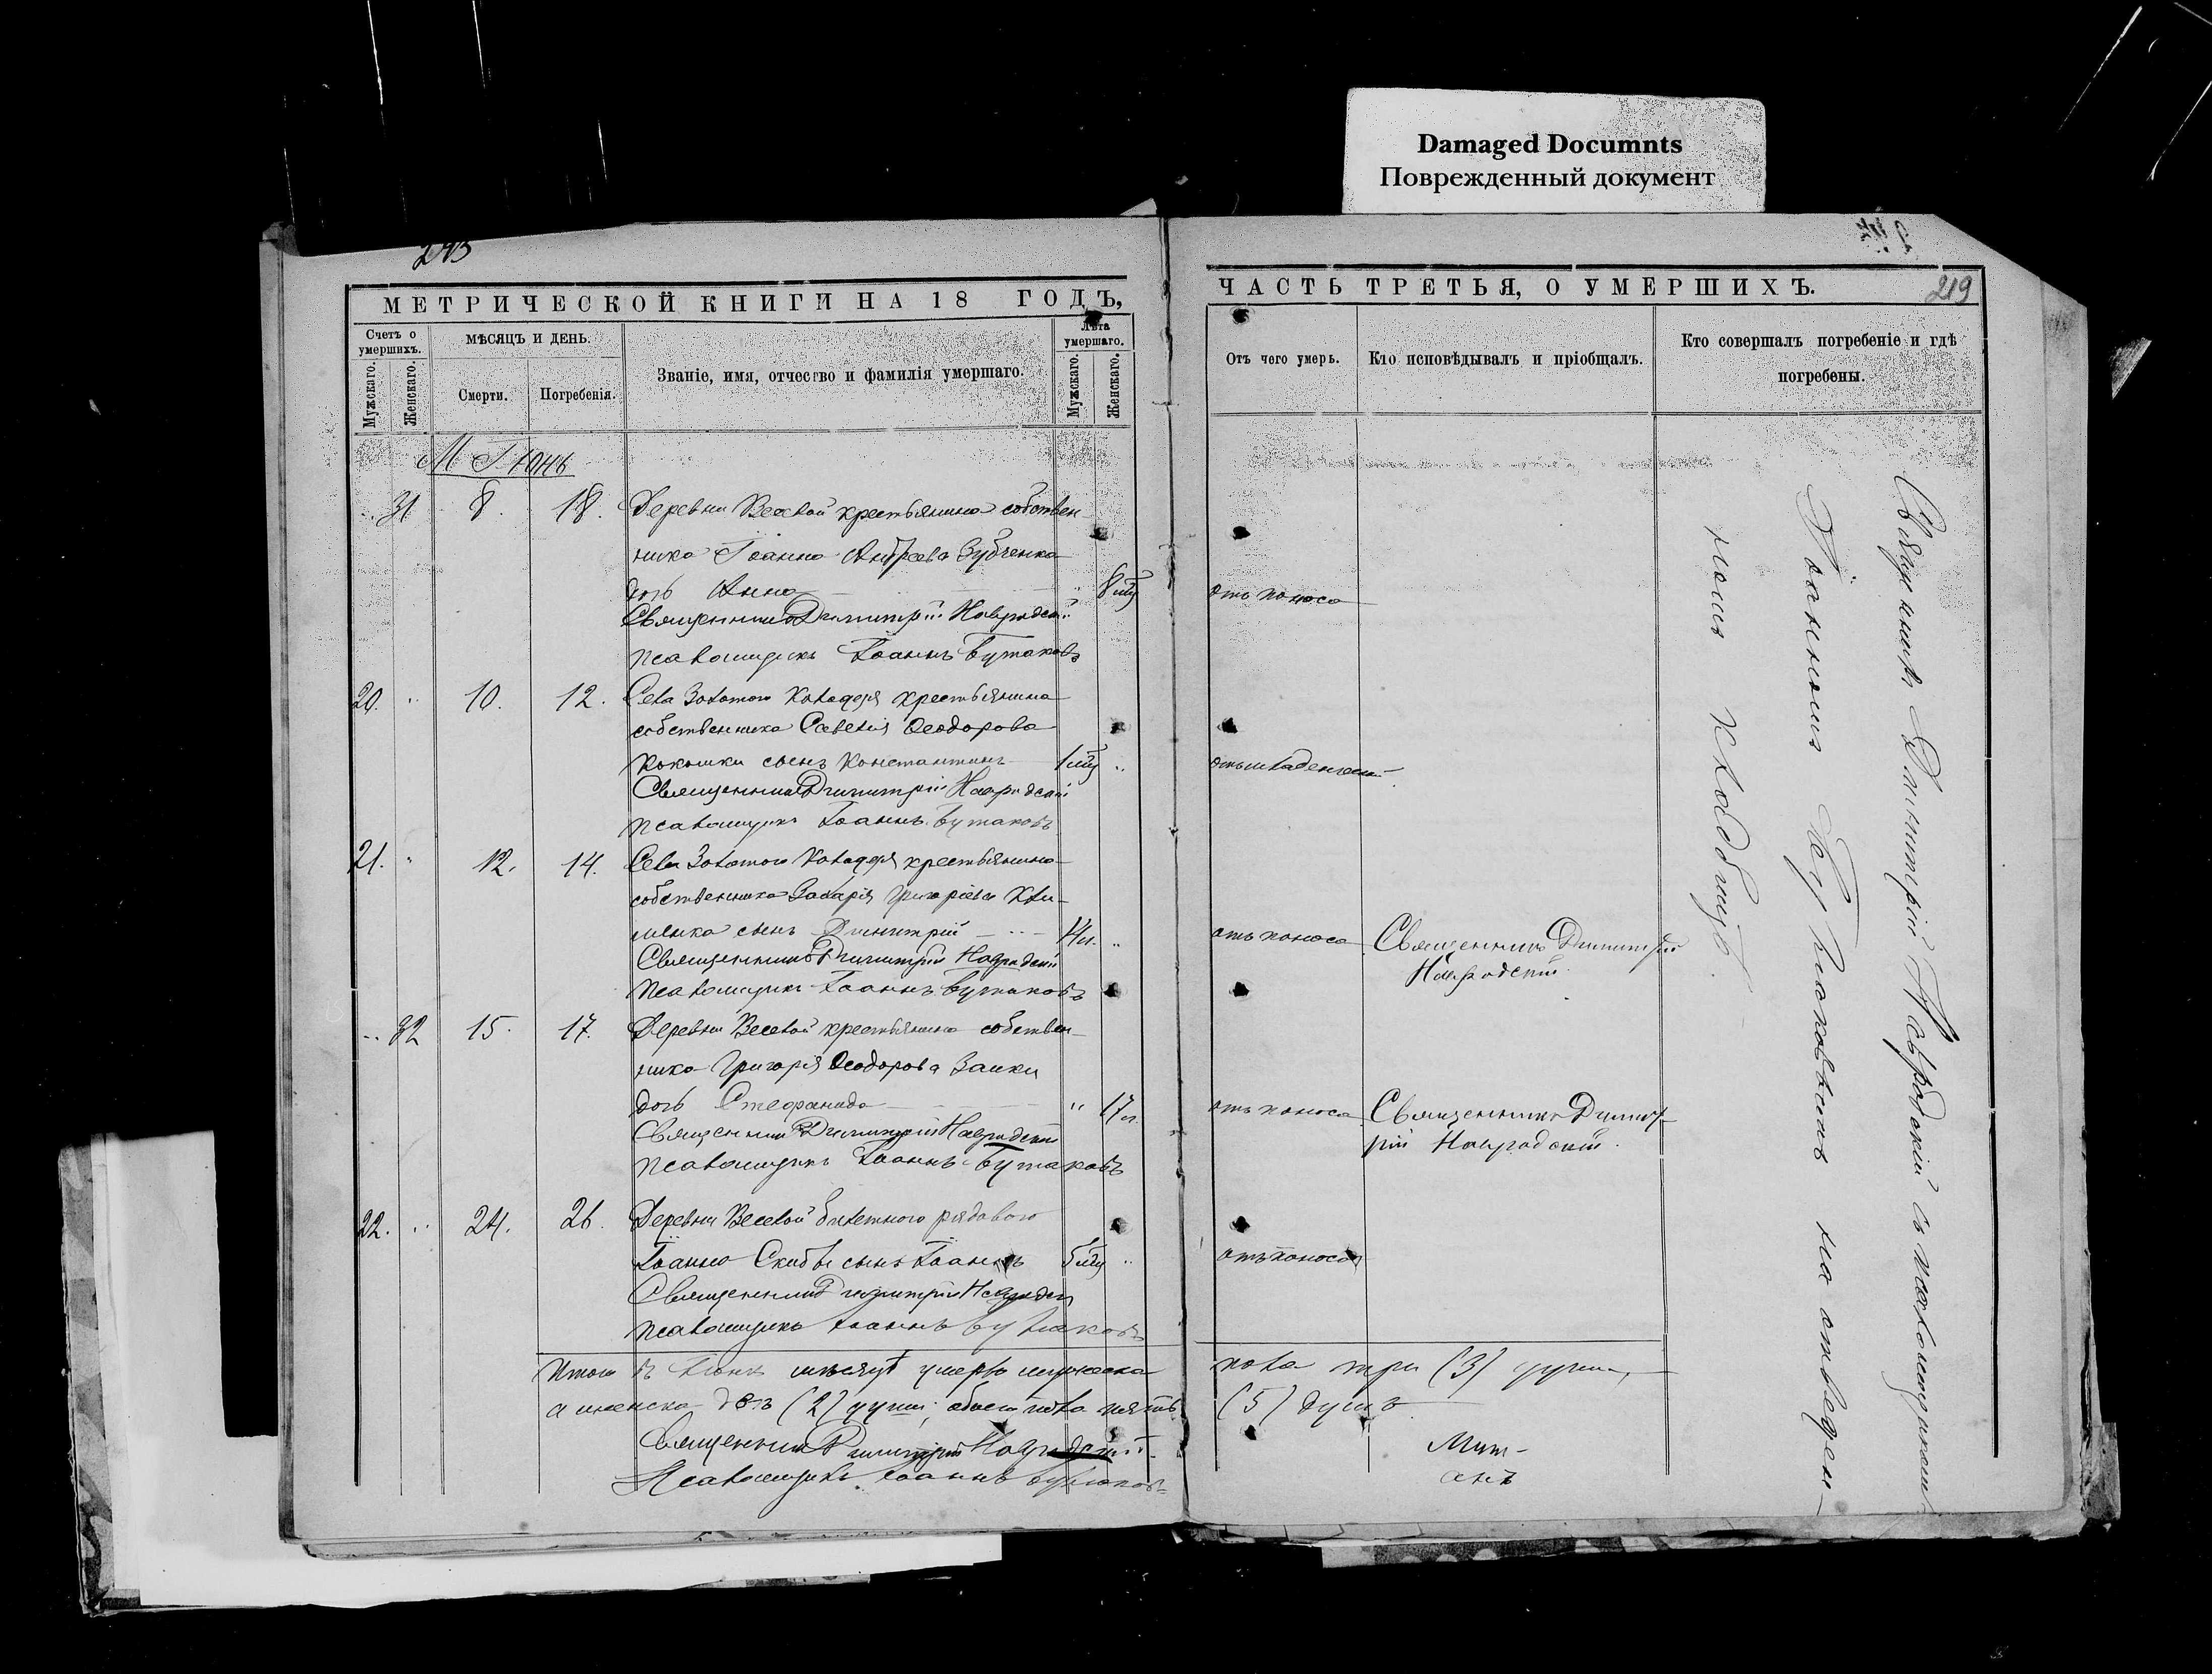 Damaged Documnts
Поврежденный документ
243
МЕТРИЧЕСКОЙ КНИГИ НА 18 ГОДЪ,
Счетъ о умершихъ.
Мужскаго.
Женскаго.
МѢСЯЦЪ И ДЕНЬ.
Смерти.
Погребенія.
Званіе, имя, отчество и фамилія умершаго.
Лѣта умершаго.
Мужскаго.
Женскаго.
М Іюнь
31 8. 18. Деревни Веселой крестьянина собствен
ника Іоанна Андреева Зубченка
дочь Анна 8 мц
Священникъ Димитрій Навродскій
псаломщикъ Іоаннъ Бутаковъ
20. 10. 12. Села Золотого Колодезя крестьянина
собственника Савелія Ѳеодорова
Кокошки сынъ Константинъ 1 мц
Священникъ Димитрій Навродскій
псаломщикъ Іоаннъ Бутаковъ
21. 12. 14. Села Золотого Колодезя крестьянина
собственника Захарія Григоріева Кли-
менка сынъ Димитрій 14 л.
Священникъ Димитрій Навродскій
псаломщикъ Іоаннъ Бутаковъ
32 15. 17. Деревни Веселой крестьянина собствен
ника Григорія Ѳеодорова Заики
дочь Стефанида 17 л.
Священникъ Димитрій Навродскій
псаломщикъ Іоаннъ Бутаковъ
22. 24. 26. Деревни Веселой билетного рядового
Іоанна Скибы сынъ Іоаннъ 5 мц
Священникъ Димитрій Навродскій
псаломщикъ Іоаннъ Бутаковъ
Итого въ Іюнѣ мѣсяцѣ умерло мужеска
а женска двѣ (2) души, обоего пола пять
Священникъ Димитрій Навродскій
Псаломщикъ Іоаннъ Бутаковъ
ЧАСТЬ ТРЕТЬЯ, О УМЕРШИХЪ.
219
Отъ чего умеръ.
Кто исповѣдывалъ и пріобщалъ.
Кто совершалъ погребеніе и гдѣ погребены.
отъ поноса
отъ младенческой
отъ поноса Священникъ Димитрій
Навродскій.
отъ поноса Священникъ Димит-
рій Навродскій.
отъ поноса
пола три (3) души,
(5) душъ
Священникъ Димитрій Навродскій съ псаломщикомъ
Іоанномъ Бутаковымъ на отведен-
номъ кладбищѣ.